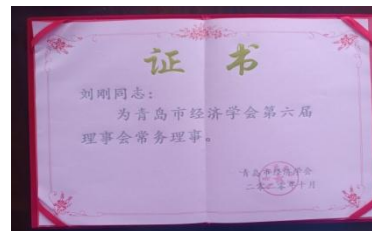 证书
刘刚同志：
为青岛市经济学会第六届
理事会常务理事。
青岛市经济学会
二零二零年十月